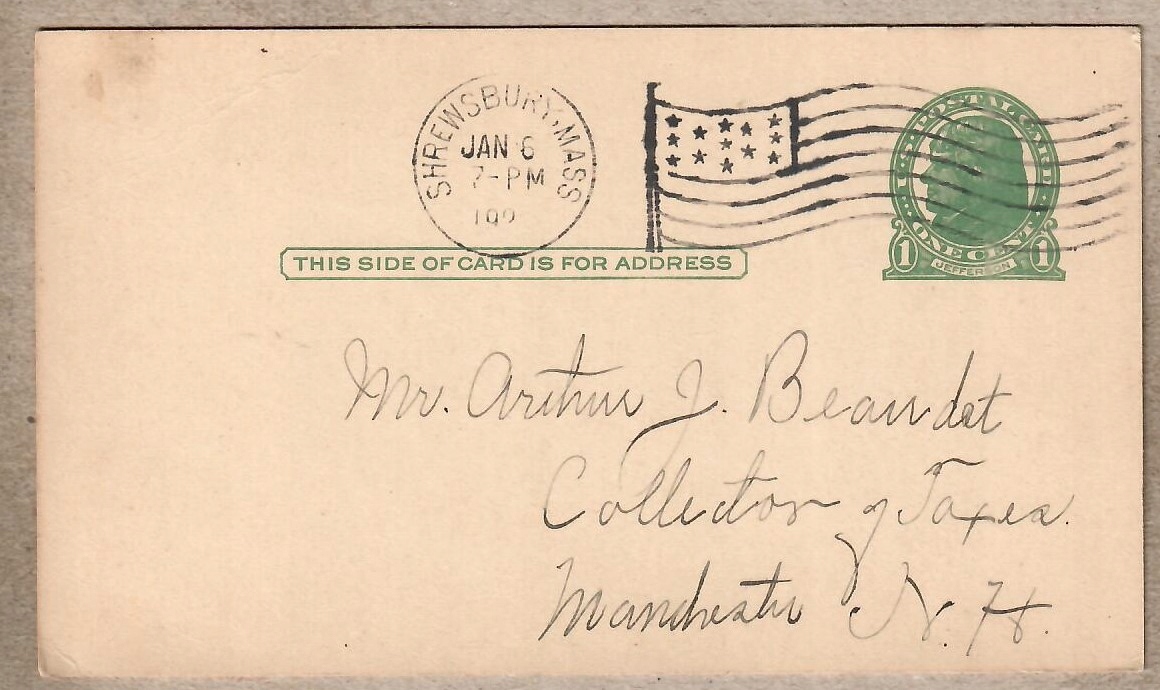 SHREWSBURY, MASS
JAN 6
7-PM
U.S. POSTAL CARD
ONE CENT
1 JEFFERSON 1
THIS SIDE OF CARD IS FOR ADDRESS
Mr. Arthur J. Beaudet
Collector of Taxes.
Manchester N. H.